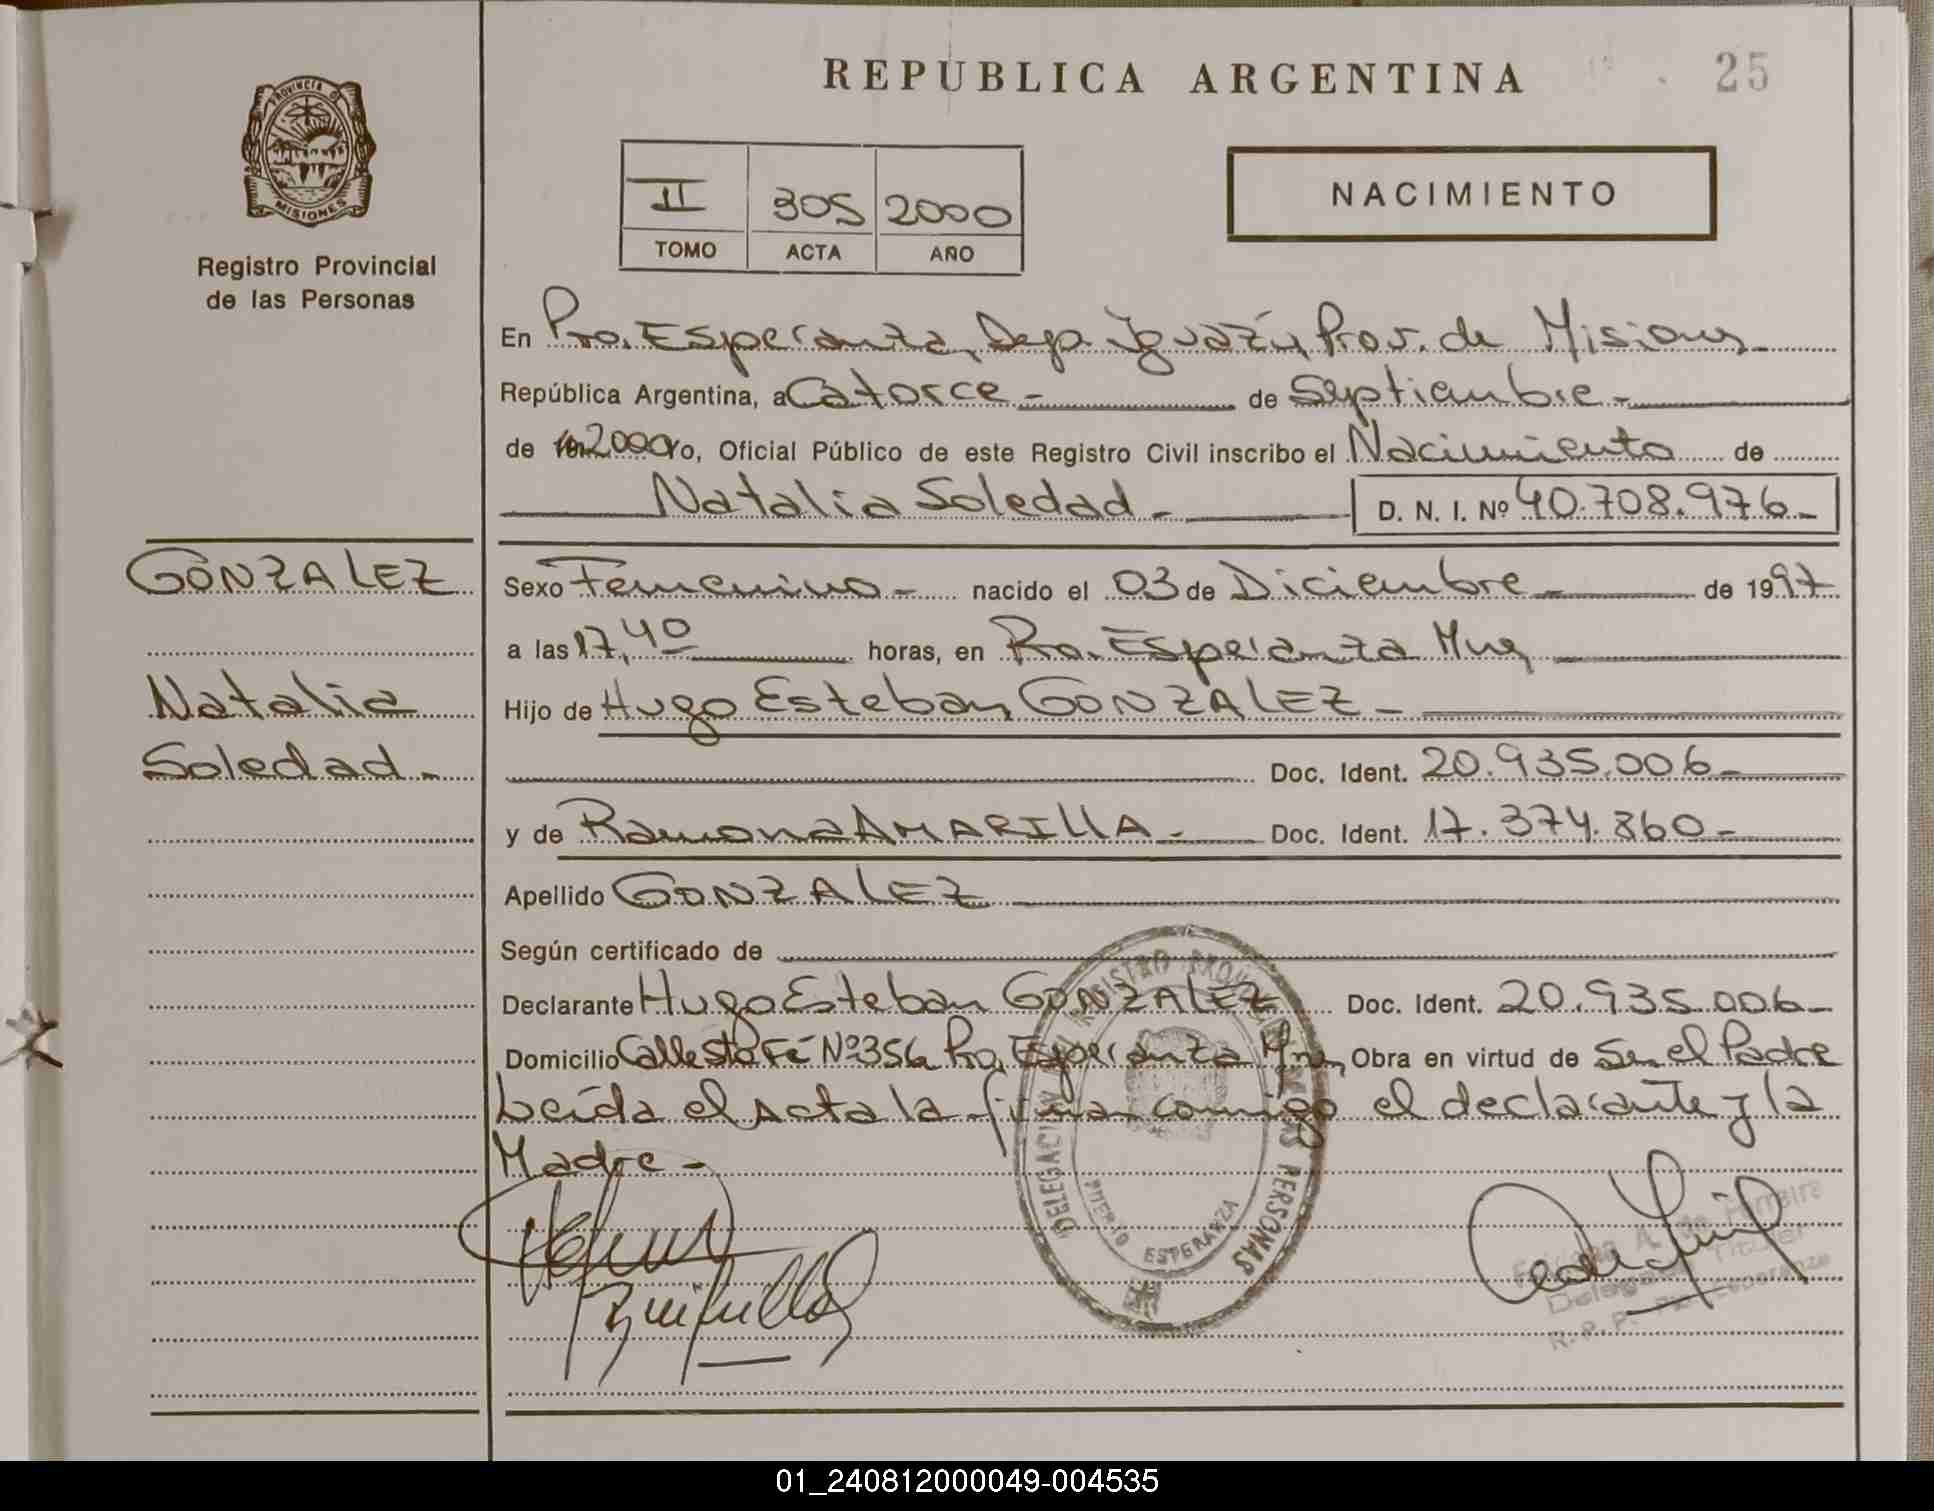 REPUBLICA ARGENTINA
25
PROVINCIA DE
MISIONES
Registro Provincial
de las Personas
II 305 2000
TOMO ACTA AÑO
NACIMIENTO
En Pto. Esperanza, Dep. Iguazú, Prov. de Misiones
República Argentina, a Catorce - de Septiembre -
de 2000 Yo, Oficial Público de este Registro Civil inscribo el Nacimiento de
Natalia Soledad - D. N. I. Nº 40.708.976 -
GONZALEZ
Natalia
Soledad -
Sexo Femenino - nacido el 03 de Diciembre - de 1997
a las 17,40 horas, en Pto. Esperanza Mnes
Hijo de Hugo Esteban GONZALEZ -
Doc. Ident. 20.935.006 -
y de Ramona AMARILLA - Doc. Ident. 17.374.860 -
Apellido GONZALEZ
Según certificado de
Declarante Hugo Esteban GONZALEZ Doc. Ident. 20.935.006 -
Domicilio Calle Sta Fé Nº 356 Pto. Esperanza Mnes, Obra en virtud de Ser el Padre
Leída el Acta la firman conmigo el declarante y la
Madre -
DELEGACION REGISTRO PROVINCIAL DE LAS PERSONAS
PUERTO ESPERANZA
A. de Ferreira
Delegada Titular
R. P. P. Pto. Esperanza
01_240812000049-004535